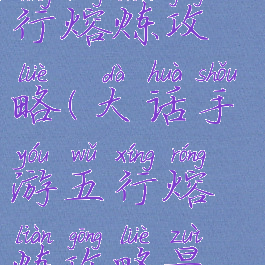 行熔炼攻
lüè dà huà shǒu
略(大话手
yóu wǔ xíng róng
游五行熔
liàn gōng lüè zuì
炼攻略最